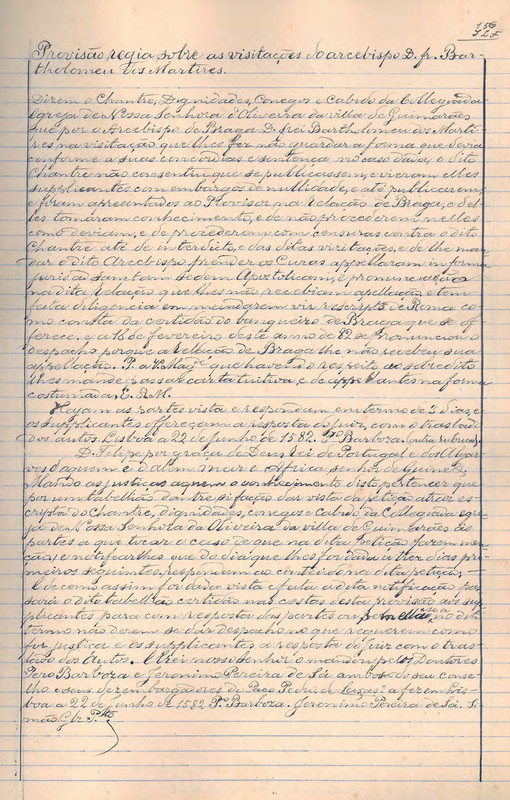 156
Provisão regia sobre as visitações do arcebispo D. fr. Bar-
tholomeu dos Martires.
Dizem o Chantre, Dignidades, Conegos e Cabido da Collegiada
Igreja de Nossa Senhora d'Oliveira da villa de Guimarães
que por o Arcebispo de Braga D. frei Bartholomeu dos Marti-
res na visitação que lhes fez não guardar a forma que devia
conforme a suas concordias e sentença no caso dadas, o dito
Chantre não consentiu que se publicassem, e vieram elles
supplicantes com embargos de nullidade, e até publicarem,
e foram apresentados ao Provisor na Relação de Braga, e del-
les tomaram conhecimento, e de não procederem nelles
como deviam, e de procederem com censuras contra o dito
Chantre até de interdicto, e das ditas visitações, e de lhe man-
dar o dito Arcebispo prender os Curas appellaram in forma
juris ad Sanctam Sedem Apostolicam, e pronunciação
na dita Relação que lhes não recebiam appellação, e tem
feita diligencia em mandarem vir rescripto de Roma co-
mo consta da certidão do banqueiro de Braga que se off-
erece. e a 16 de fevereiro deste anno de 82 se pronunciou o
despacho porque a Relação de Braga lhe não recebeu sua
appellação. P. a V. Mag.de que havendo respeito ao sobredito
lhes mande passar carta tuitiva, e de appellantes na forma
costumada, E. R. M.
Hajam as partes vista e respondam em termo de 3 dias, e
os supplicantes offereçam a resposta do juiz, com o traslado
dos autos. Lisboa a 22 de Junho de 1582. P.o Barboza. (outra rubrica).
D. Felipe por graça de Deus, rei de Portugal e dos Algar-
ves d'aquem e d'alem mar e Africa senhor de Guiné &.
Mando as justiças a quem o conhecimento disto pertencer que
por um tabellião dante si façaes dar vista da petição atraz es-
cripta do Chantre, dignidades, conegos e Cabido, da Collegiada Igre-
ja de Nossa Senhora da Oliveira da villa de Guimarães ás
partes a que tocar o caso de que na dita petição fazem men-
ção, e notificar lhes que do dia que lhes for dada a trez dias pri-
meiros seguintes, respondam ao conteúdo na dita petição,
E de como assim foi dada vista e feita a dita notificação pas-
sará o dito tabellião certidão nas costas desta provisão aos sup-
plicantes para com resposta das partes ou sem ella se a no dito
termo não derem se dar despacho no que requerem como
for justiça e os supplicantes a resposta do juiz com o tras-
lado dos autos. El rei nosso senhor o mandou pelos Doutores
Pero Barboza e Jeronimo Pereira de Sá ambos do seu conse-
lho e seus dezembargadores do Paço. Pedro de Seixas a fez em Lis-
boa a 22 de Junho de 1582. P.o Barboza. Geronimo Pereira de Sá. Si-
mão